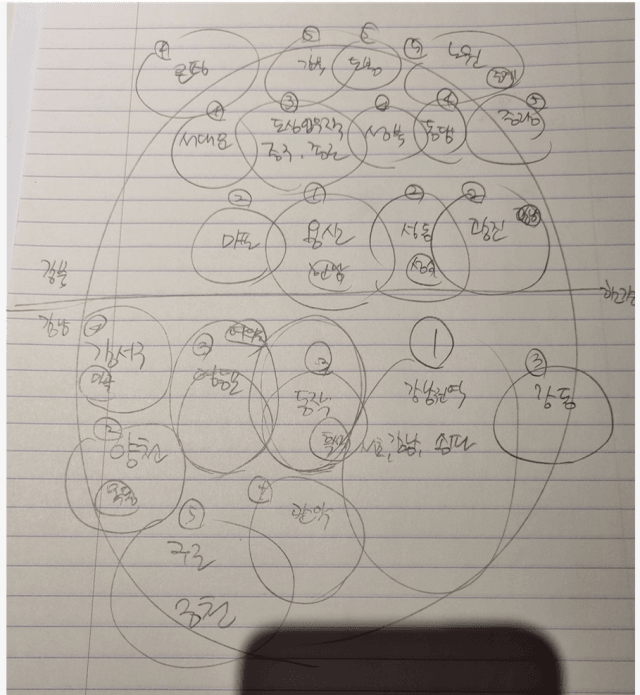 ④ ⑤ ⑤ ⑤
은평 강북 도봉 노원
④ ③ ④ ⑤
서대문 도심업무지구 성북 동대 중랑
중구, 종로
② ① ② ②
마포 용산 성동 광진
강북
한강
강남
①
강서구 ③ ③ ③
영등포 동작 강남권역 강동
②
양천 서초, 강남, 송파
목동
⑤ ④
구로 관악
금천